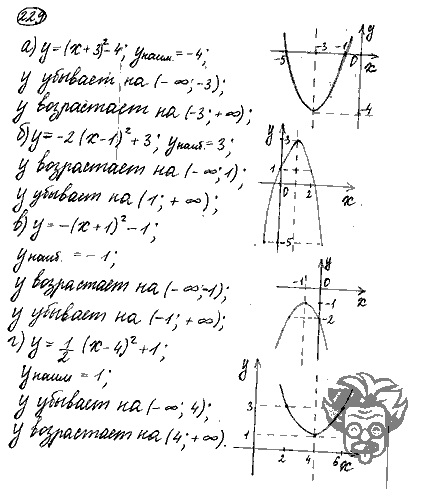 229
а) y = (x+3)²-4; yнаим. = -4;
у убывает на (-∞; -3);
у возрастает на (-3; +∞);
б) y = -2(x-1)²+3; yнаиб. = 3;
у возрастает на (-∞; 1);
у убывает на (1; +∞);
в) y = -(x+1)²-1;
yнаиб. = -1;
у возрастает на (-∞; -1);
у убывает на (-1; +∞);
г) y = 1/2 (x-4)²+1;
yнаим = 1;
у убывает на (-∞; 4);
у возрастает на (4; +∞).
y
-5 -3 -1 0
x
-4
y
3
1
0 2
x
-5
y
-1 0
-1 x
-2
y
3
1
2 4 6 x